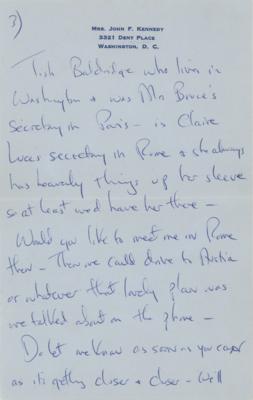 3)
MRS. JOHN F. KENNEDY
3321 DENT PLACE
WASHINGTON, D. C.
Tish Baldridge who lives in
Washington & was Mrs Bruce's
Secretary in Paris - is Claire
Luces secretary in Rome & she always
has heavenly things up her sleeve
so at least we'd have her there -
Would you like to meet me in Rome
then - Then we could drive to Austria
or whatever that lovely plan was
we talked about on the phone -
Do let me know as soon as you can
as its getting closer & closer - We'll